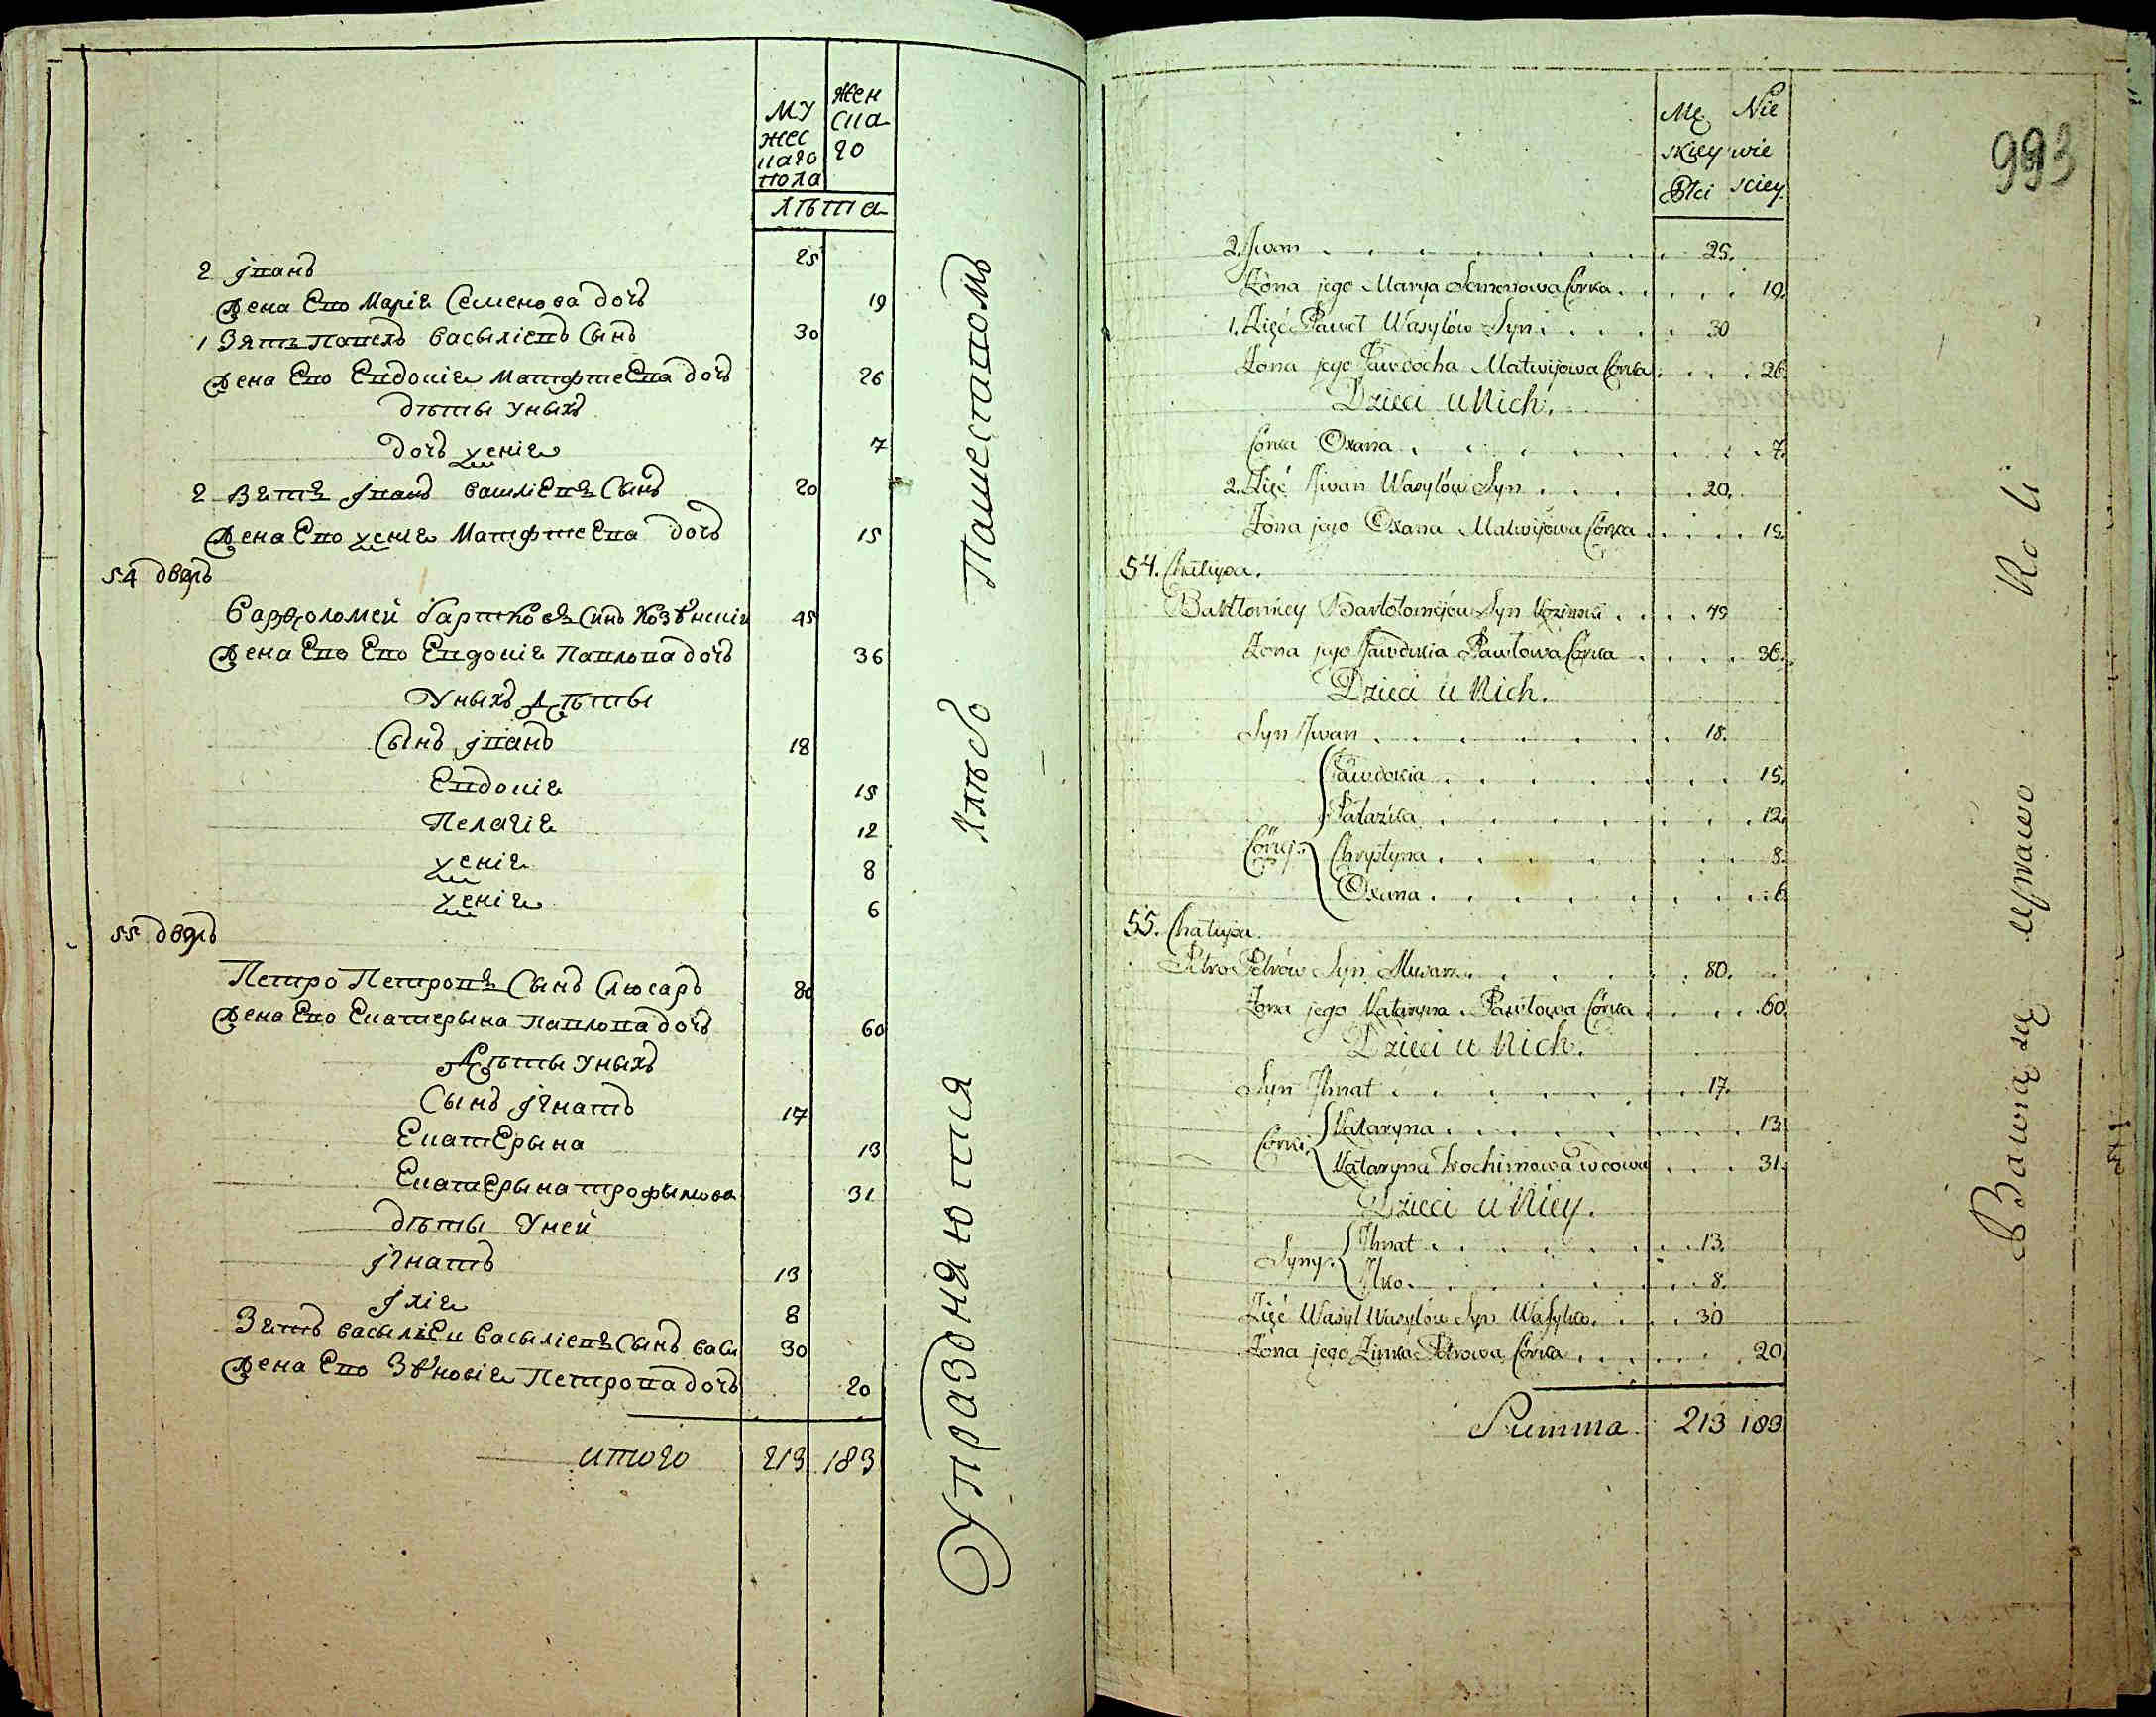 му
жес
каго
пола
жен
ска
го
лѣта
2 Іванъ 25
жена Его Марія Семенова дочь 19
1 Зять Павелъ Василіевъ Сынъ 30
жена Его Евдокія Матфѣева дочь 26
дѣты уныхъ
дочь Ксенія 7
2 Зять Іванъ Василіевъ Сынъ 20
жена Его Ксенія Матфѣева дочь 15
54 дворъ
Варфоломей Бартковъ Синъ 45
жена Его Его Евдокія Павлова дочь 36
Уныхъ дѣты
Сынъ Іванъ 18
Евдокія 15
Пелагія 12
Ксенія 8
Ксенія 6
55 дворъ
Петро Петровъ Сынъ Слюсаръ 80
жена Его Екатерына Павлова дочь 60
дѣты уныхъ
Сынъ Ігнатъ 17
Екатерына 13
Екатерына трофымова 31
дѣты Уней
Ігнатъ 13
Ілія 8
Зять василіеи Василіевъ Сынъ васи 30
жена Его Зѣновія Петрова дочь 20
итого 213 183
Упразоняются Хлѣбо Пашестовомъ
Mę Nie
skiey wie
Płci sciey
993
2. Jwan 25.
Żona jego Marya Semenowa Córka 19.
1. Zięć Paweł Wasylów Syn 30
Żona jego Jawdocha Matwijowa Córka 26.
Dzieci u Nich.
Córka Oxana 7.
2. Zięć Jwan Wasylów Syn 20.
Żona jego Oxana Matwijowa Córka 15.
54. Chałupa.
Bartłomiey Bartłomijów Syn 45
Żona jego Jawdokia Pawłowa Córka 36.
Dzieci u Nich.
Syn Jwan 18.
Jawdokia 15.
Pałazka 12.
Córki
Chrystyna 8.
Oxana 6.
55. Chałupa.
Petro Petrów Syn Slusarz 80.
Żona jego Kataryna Pawłowa Córka 60.
Dzieci u Nich.
Syn Jhnat 17.
Kataryna 13.
Córki
Kataryna Trochimowa wdowa 31.
Dzieci u Niey.
Jhnat 13.
Syny
Ilko 8.
Zięć Wasyl Wasylów Syn Wasylko 30
Żona jego Zinka Petrowa Córka 20
Summa 213 183
Bawią się uprawą Roli